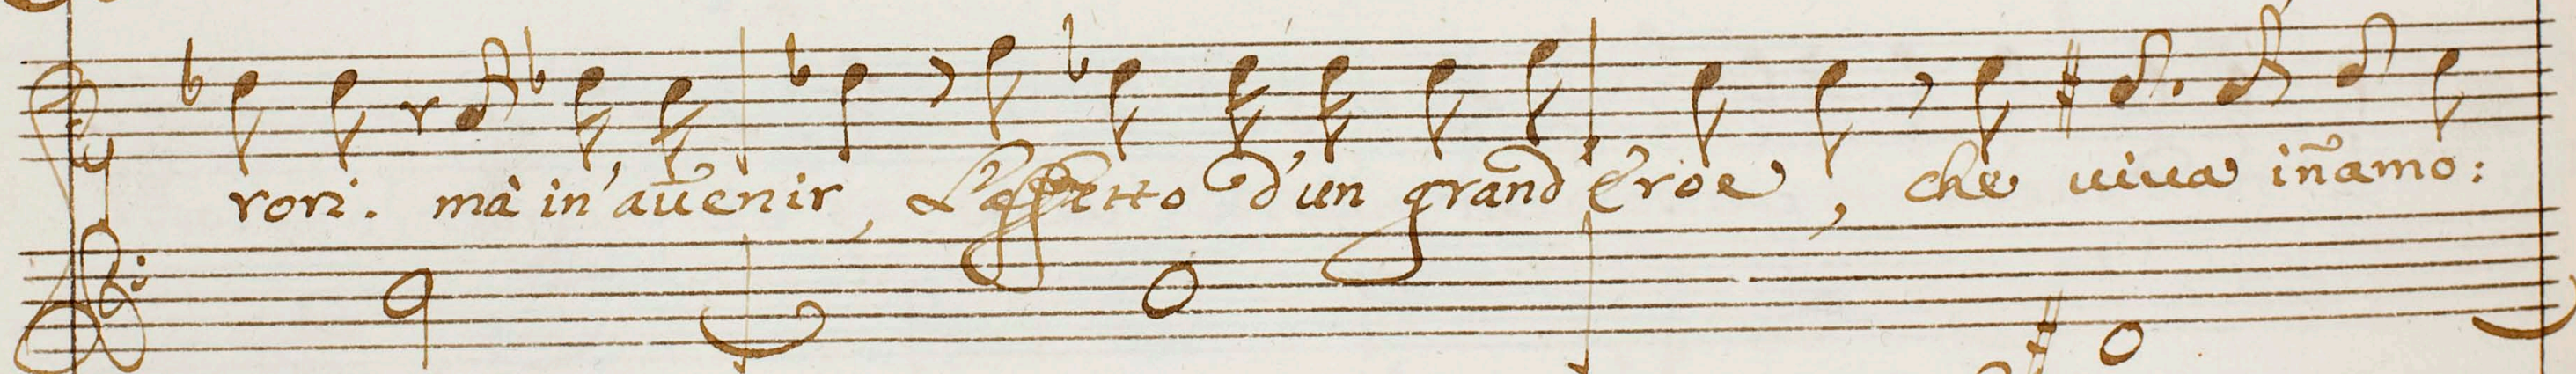 rori. mà in'aūenir, L'affetto d'un grand'Eroe, che uiua iñamo: